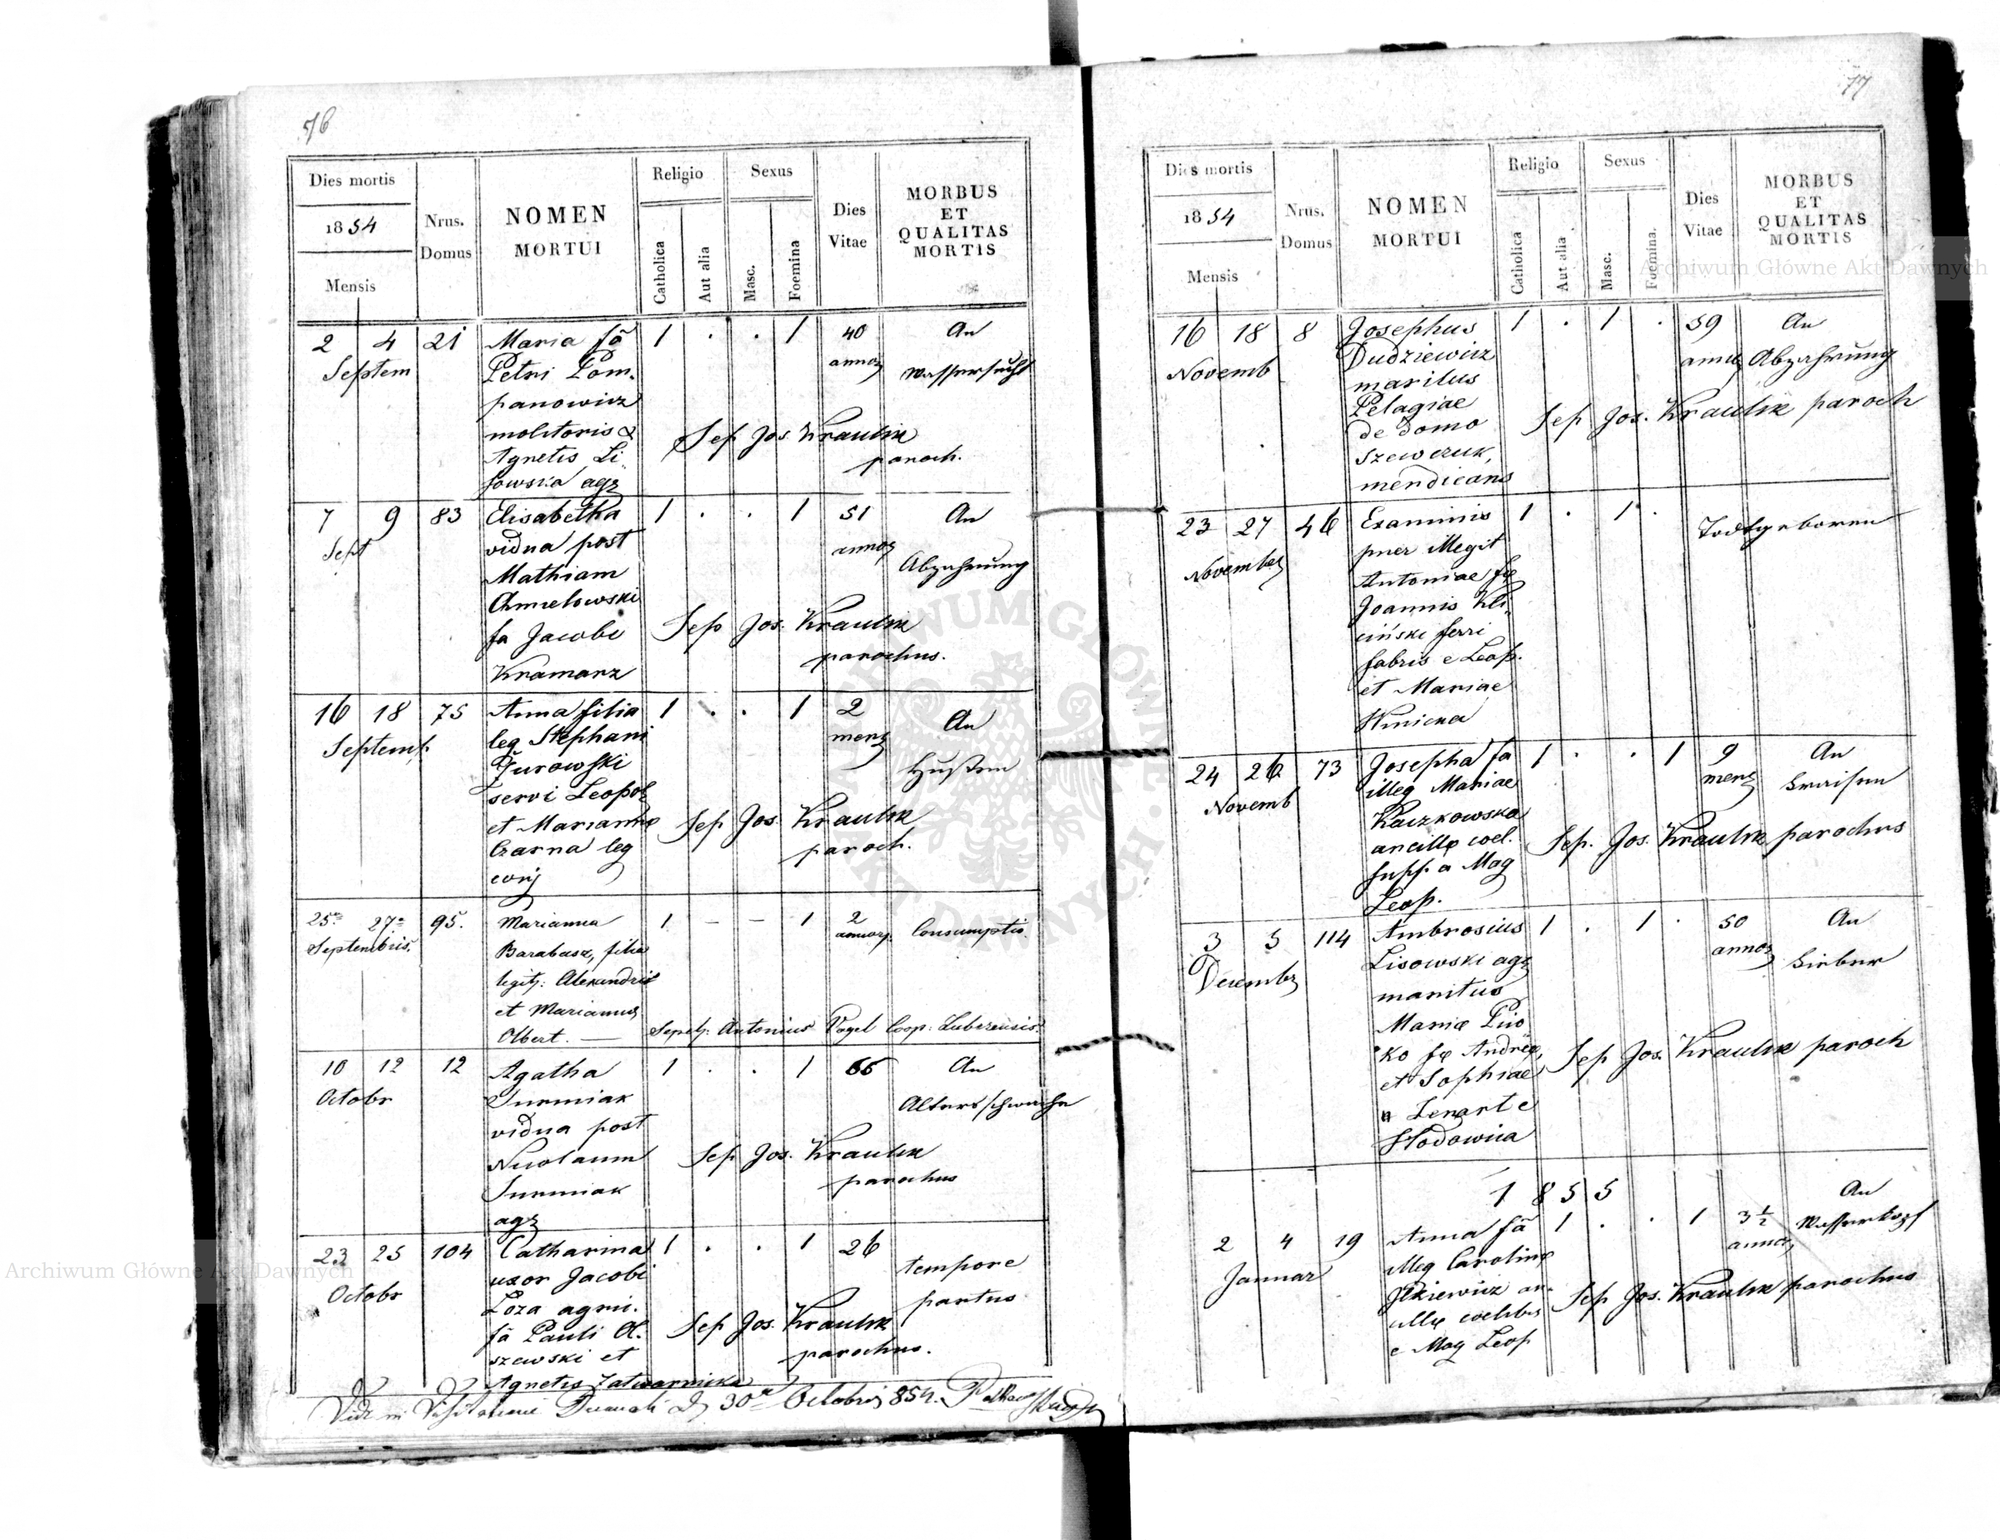 76
Dies mortis
1854
Mensis
Nrus.
Domus
NOMEN
MORTUI
Religio
Catholica
Aut alia
Sexus
Masc.
Foemina
Dies
Vitae
MORBUS
ET
QUALITAS
MORTIS
2 4 21 Maria fa 1 . . 1 40 An
Septem Petri Pom- annor Wassersucht
panowicz
molitoris &
Agnetis Li-
sowska agr
Sep Jos Kraulik
paroch.
7 9 83 Elisabetha 1 . . 1 51 An
Sept vidua post annor Abzehrung
Mathiam
Chmielowski
fa Jacobi
Kramarz
Sep Jos. Kraulik
parochus.
16 18 75 Anna filia 1 . . 1 2 An
Septemb. leg Stephani mens Husten
Żurowski
servi Leopol
et Marianne
Czarna leg
conj
Sep Jos Kraulik
paroch.
25 27 95. Marianna 1 – – 1 2 Consumptis
Septembris. Barabasz, filia annorr.
legit: Alexandri
et Marianna
Olbert. —
Sepel: Antonius Vogel Coop: Lubezensis
10 12 12 Agatha 1 . . 1 66 An
Octobr Surmiak Altersschwäche
vidua post
Nicolaum
Surmiak
agr
Sep Jos. Kraulik
parochus
23 25 104 Catharina 1 . . 1 26 tempore
Octobr uxor Jacobi partus
Łoza agric.
fa Pauli Ol-
szewski et
Agnetis Zatwarnicka
Sep Jos. Kraulik
parochus.
Vidi in Visitatione Decanali 30 Octobris 854.
77
Dies mortis
1854
Mensis
Nrus.
Domus
NOMEN
MORTUI
Religio
Catholica
Aut alia
Sexus
Masc.
Foemina.
Dies
Vitae
MORBUS
ET
QUALITAS
MORTIS
16 18 8 Josephus 1 . 1 . 59 An
Novemb Dudziewicz annor Abzehrung
maritus
Pelagiae
de domo
Szewczuk,
mendicans
Sep Jos. Kraulik paroch
23 27 46 Exanimis 1 . 1 . Todtgeboren
November puer illegit
Antoniae fae
Joannis Kli-
ciński ferri
fabris e Leop.
et Mariae
Kmicka
24 26 73 Josepha fa 1 . . 1 9 An
Novemb illeg Mariae mens Fraisen
Kaczkowska
ancillae coel.
supp. a Mag
Leop.
Sep. Jos. Kraulik parochus
3 5 114 Ambrosius 1 . 1 . 50 An
Decembr Lisowski agr annor Fieber
maritus
Mariae Piio
ko fae Andreae,
et Sophiae
a Lenart e
Hodowica
Sep Jos. Kraulik paroch
1855
2 4 19 Anna fa 1 . . 1 3 1/2 An
Januar illeg Carolinae annor Wasserkopf
Ilkiewicz an-
cillae coelibis
e Mag Leop
Sep Jos. Kraulik parochus
Archiwum Główne Akt Dawnych
Archiwum Główne Akt Dawnych
ARCHIWUM GŁÓWNE AKT DAWNYCH